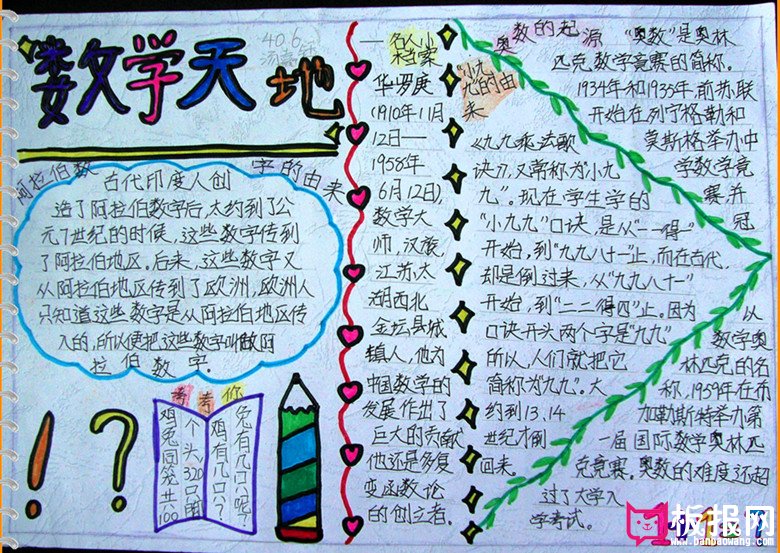 数学天地
40.6
阿拉伯数字的由来
古代印度人创
造了阿拉伯数字后,大约到了公
元7世纪的时候,这些数字传到
了阿拉伯地区。后来,这些数字又
从阿拉伯地区传到了欧洲,欧洲人
只知道这些数字是从阿拉伯地区传
入的,所以便把这些数字叫做阿
拉伯数字。
考考你
鸡兔同笼共100
个头,320只脚
鸡有几只?
兔有几只呢?
名人小
档案
华罗庚
(1910年11月
12日—
1958年
6月12日),
数学大
师,汉族,
江苏太
湖西北
金坛县城
镇人,他为
中国数学的
发展作出了
巨大的贡献
他还是多复
变函数论
的创立者。
“小九
九”的由
来
《九九乘法歌
诀》,又常称为“小九
九”。现在学生学的
“小九九”口诀,是从“一一得一”
开始,到“九九八十一”止,而在古代,
却是倒过来,从“九九八十一”
开始,到“二二得四”止。因为
口诀开头两个字是“九九”
所以,人们就把它
简称为“九九”。大
约到13、14
世纪才倒
回来。
奥数的起源
“奥数”是奥林
匹克数学竞赛的简称。
1934年和1935年,前苏联
开始在列宁格勒和
莫斯格举办中
学数学竞
赛,并
冠
以
数学奥
林匹克的名
称,1959年在布
加勒斯特举办第
一届国际数学奥林匹
克竞赛。奥数的难度还超
过了大学入
学考试。
板报网
www.banbaowang.com